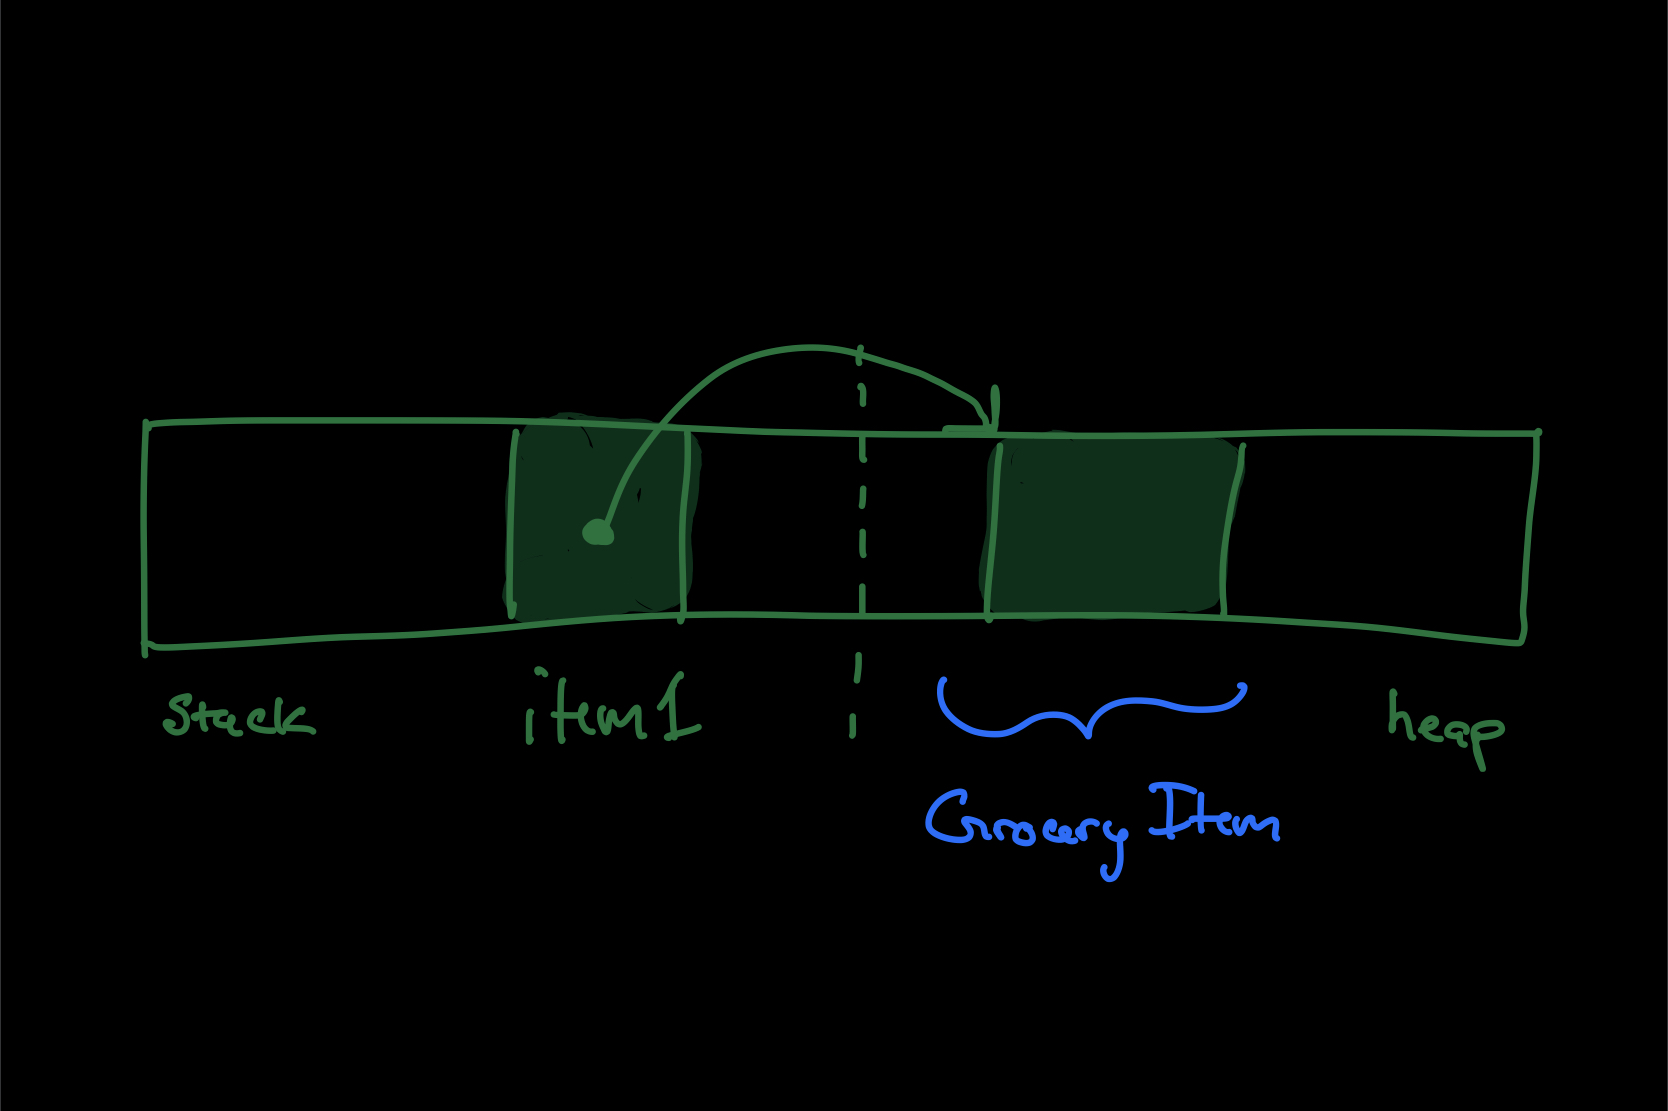 Stack
item1
heap
Grocery Item